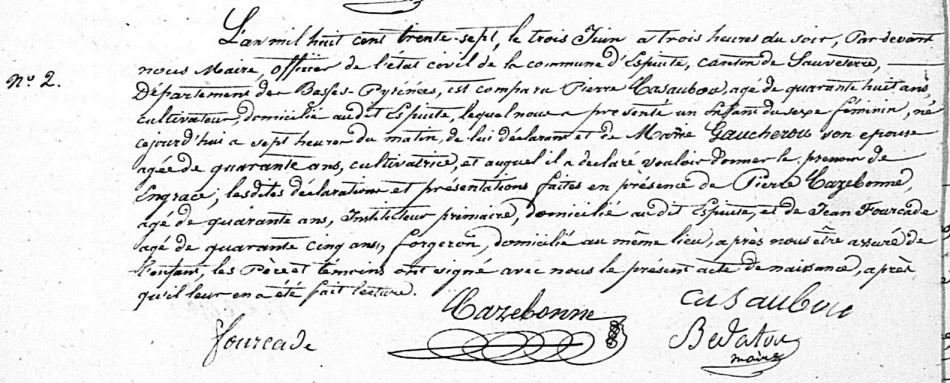 L'an mil huit cent trente-sept, le trois Juin à trois heures du soir, Par devant
nous Maire, officier de l'état civil de la commune d'Espiute, canton de Sauveterre,
N° 2.
Département des Basses-Pyrénées, est comparu Pierre Casaubou, agé de quarante huit ans,
cultivateur, domicilié audit Espiute, lequel nous a présenté un Enfant du sexe féminin, né
cejourd'hui a sept heures du matin, de lui déclarant et de Marie Gaucherou son epouse
agée de quarante ans, cultivatrice, et auquel il a déclaré vouloir donner le prenom de
Engrace; lesdites déclarations et présentations faites en présence de Pierre Cazebonne,
agé de quarante ans, Instituteur primaire, domicilié audit Espiute, et de Jean Fourcade
agé de quarante cinq ans, forgeron, domicilié au même lieu, après nous être assuré de
l'enfant, les Père et témoins ont signé avec nous le présent acte de naissance, après
qu'il leur en a été fait lecture.
Cazebonne casaubou
fourcade
maire